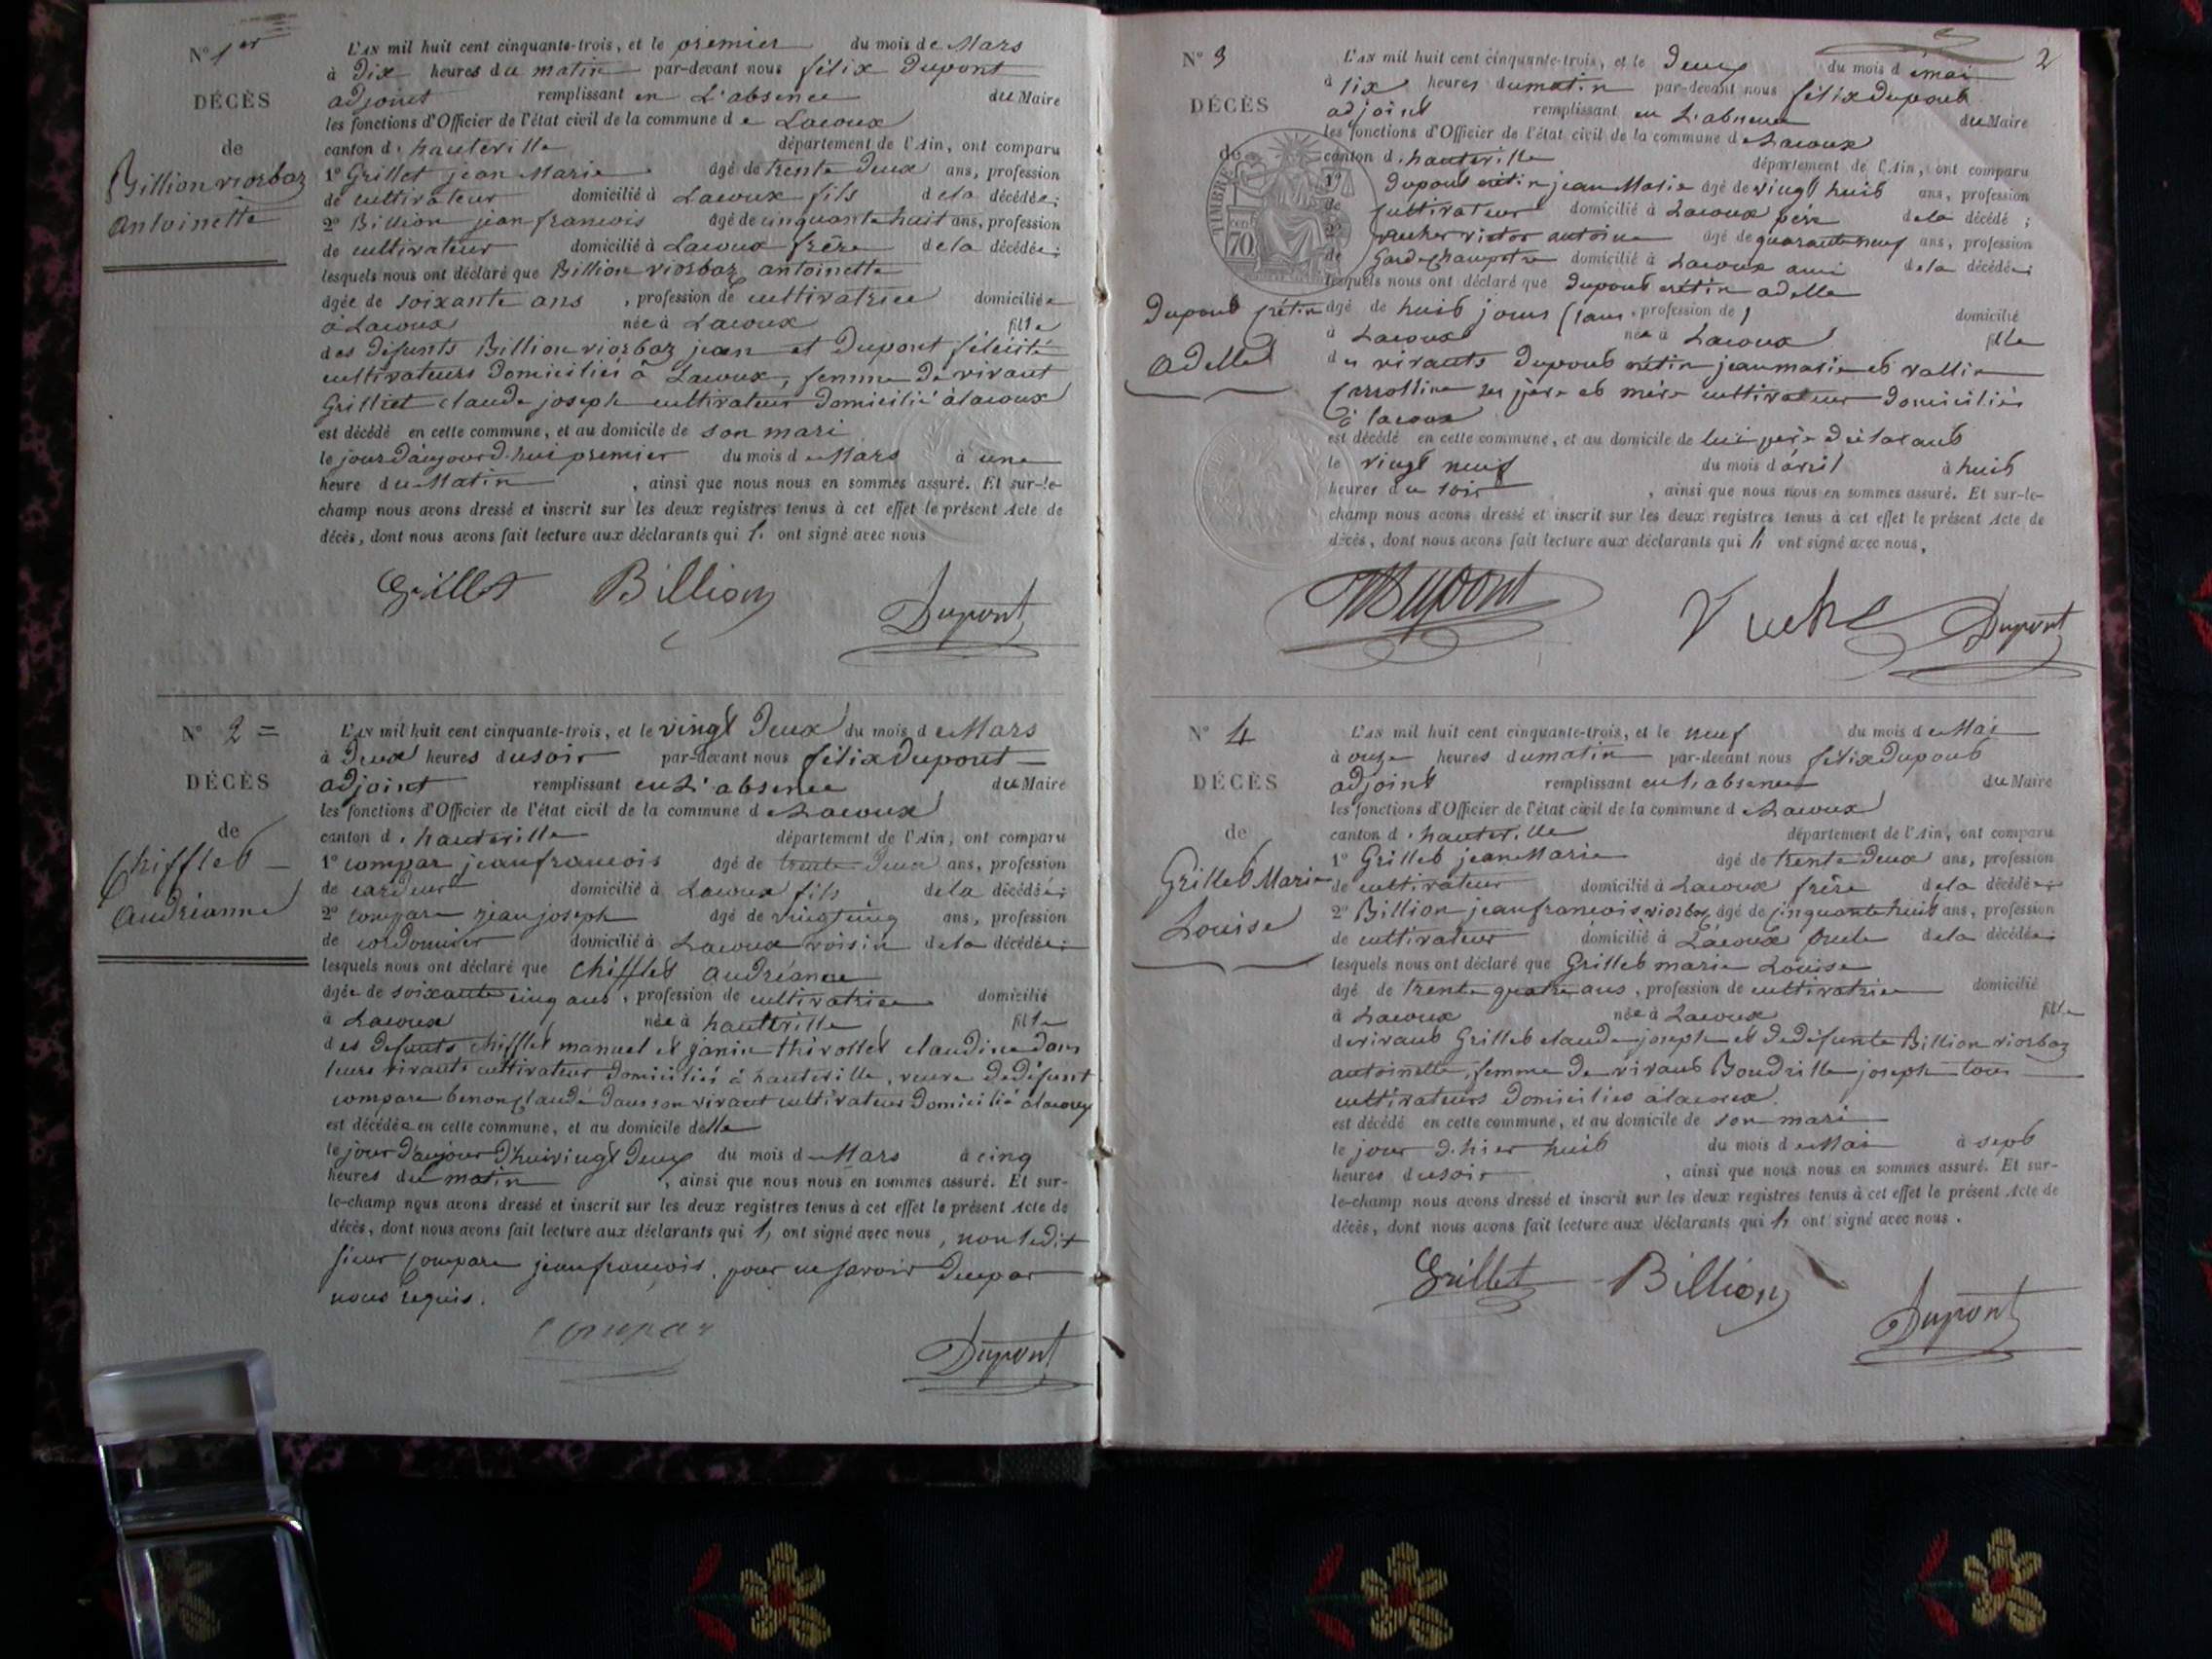 N° 1er
DÉCÈS
de
Billion viorbaz
Antoinette
L'AN mil huit cent cinquante-trois, et le premier du mois de Mars
à Dix heures du matin par-devant nous félix Dupont
adjoint remplissant en L'absence du Maire
les fonctions d'Officier de l'état civil de la commune de Lacoux
canton d'hauteville département de l'Ain, ont comparu
1° Grillet jean Marie âgé de trente Deux ans, profession
de cultivateur domicilié à Lacoux fils de la décédée;
2° Billion jean francois âgé de cinquante huit ans, profession
de cultivateur domicilié à Lacoux frère de la décédée;
lesquels nous ont déclaré que Billion viorbaz antoinette
âgée de soixante ans, profession de cultivatrice domiciliée
à Lacoux née à Lacoux fille
des défunts Billion viorbaz jean et Dupont félicité
cultivateurs Domiciliés à Lacoux, femme De vivant
Grilliet claude joseph cultivateur Domicilié à lacoux
est décédé en cette commune, et au domicile de son mari
le jour d'aujourd'hui premier du mois de Mars à une
heure du Matin, ainsi que nous nous en sommes assuré. Et sur-le-
champ nous avons dressé et inscrit sur les deux registres tenus à cet effet le présent Acte de
décès, dont nous avons fait lecture aux déclarants qui l' ont signé avec nous
Grillet Billion
Dupont
N° 2 =
DÉCÈS
de
Chifflet
Audrianne
L'AN mil huit cent cinquante-trois, et le vingt Deux du mois de Mars
à Deux heures du soir par-devant nous félix Dupont
adjoint remplissant en L'absence du Maire
les fonctions d'Officier de l'état civil de la commune de Lacoux
canton d'hauteville département de l'Ain, ont comparu
1° compar jean francois âgé de trente Deux ans, profession
de cardeur domicilié à Lacoux fils de la décédée;
2° compare jean joseph âgé de vingt cinq ans, profession
de cordonnier domicilié à Lacoux voisin de la décédée;
lesquels nous ont déclaré que Chifflet audréanne
âgée de soixante cinq ans, profession de cultivatrice domicilié
à Lacoux née à hauteville fille
des défunts chifflet manuel et janin thivollet claudine dans
leurs vivants cultivateur domiciliés à hauteville, veuve De défunt
compare benon claude Dans son vivant cultivateur Domicilié à lacoux
est décédée en cette commune, et au domicile delle
le jour d'aujour D'hui vingt Deux du mois de Mars à cinq
heures du matin, ainsi que nous nous en sommes assuré. Et sur-
le-champ nous avons dressé et inscrit sur les deux registres tenus à cet effet le présent Acte de
décès, dont nous avons fait lecture aux déclarants qui l' ont signé avec nous, non ledit
sieur compare jean francois, pour ne savoir Deepar
nous requis.
Compar
Dupont
2
N° 3
DÉCÈS
de
Dupont crétin
adelle
TIMBRE
70
L'AN mil huit cent cinquante-trois, et le Deux du mois d emai
à six heures du matin par-devant nous félix dupont
adjoint remplissant en L'absence du Maire
les fonctions d'Officier de l'état civil de la commune de Lacoux
canton d'hauteville département de l'Ain, ont comparu
1° dupont crétin jean Marie âgé de vingt huit ans, profession
de cultivateur domicilié à Lacoux père de la décédé;
2° vucher victor antoine âgé de quarante neuf ans, profession
de Gardechampetre domicilié à Lacoux ami de la décédée;
lesquels nous ont déclaré que dupont crétin adelle
âgé de huit jours (ans, profession de) domicilié
à Lacoux née à Lacoux fille
des vivants Dupont crétin jean marie et vallin
ses père et mère cultivateur Domiciliés
à lacoux
est décédé en cette commune, et au domicile de lui père Déclarant
le vingt neuf du mois d'avril à huit
heures du soir, ainsi que nous nous en sommes assuré. Et sur-le-
champ nous avons dressé et inscrit sur les deux registres tenus à cet effet le présent Acte de
décès, dont nous avons fait lecture aux déclarants qui l' ont signé avec nous,
Dupont Vuche Dupont
N° 4
DÉCÈS
de
Grillet Marie
Louise
L'AN mil huit cent cinquante-trois, et le neuf du mois de Mai
à onze heures du matin par-devant nous félix Dupont
adjoint remplissant en L'absence du Maire
les fonctions d'Officier de l'état civil de la commune de Lacoux
canton d'hauteville département de l'Ain, ont comparu
1° Grillet jean Marie âgé de trente Deux ans, profession
de cultivateur domicilié à Lacoux frère de la décédée;
2° Billion jean francois viorbaz âgé de cinquante huit ans, profession
de cultivateur domicilié à Lacoux oncle de la décédée;
lesquels nous ont déclaré que Grillet marie Louise
âgé de trente quatre ans, profession de cultivatrice domicilié
à Lacoux née à Lacoux fille
de vivant Grillet claude joseph et De défunte Billion viorbaz
antoinette, femme De vivant Bondrille joseph tous
cultivateurs Domiciliés à lacoux.
est décédé en cette commune, et au domicile de son mari
le jour d'hier huit du mois de Mai à sept
heures du soir, ainsi que nous nous en sommes assuré. Et sur-
le-champ nous avons dressé et inscrit sur les deux registres tenus à cet effet le présent Acte de
décès, dont nous avons fait lecture aux déclarants qui l' ont signé avec nous.
Grillet Billion
Dupont